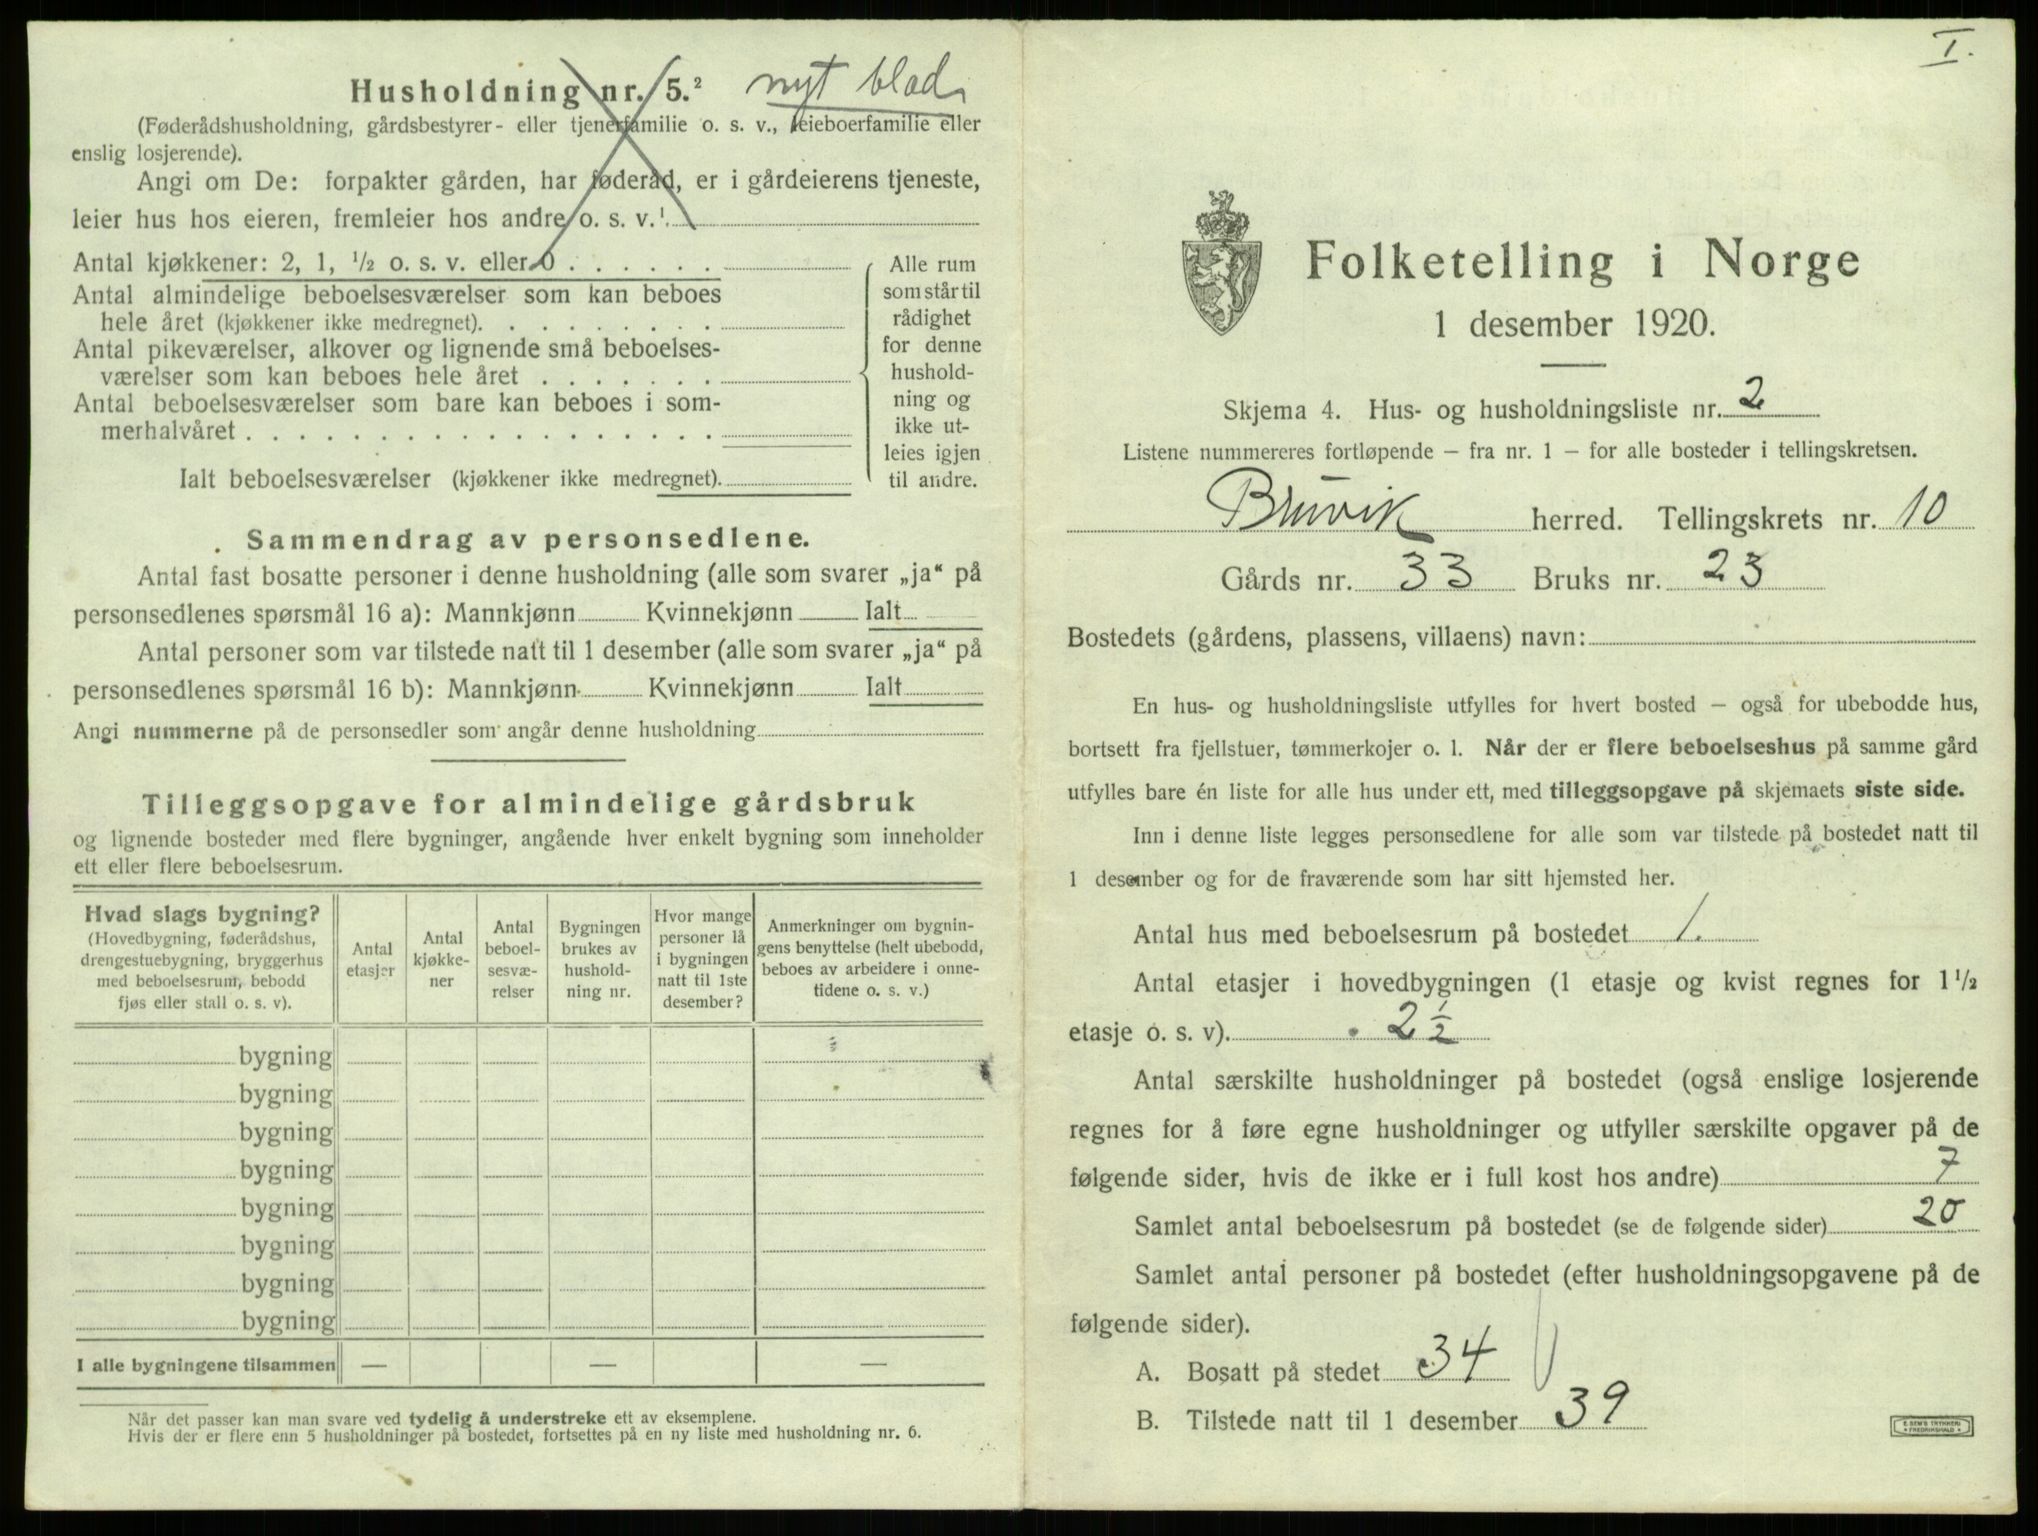 Husholdning nr. 5.² nyt blad
(Føderådshusholdning, gårdsbestyrer- eller tjenerfamilie o. s. v., leieboerfamilie eller
enslig losjerende).
Angi om De: forpakter gården, har føderåd, er i gårdeierens tjeneste,
leier hus hos eieren, fremleier hos andre o. s. v.¹
Antal kjøkkener: 2, 1, ½ o. s. v. eller 0
Antal almindelige beboelsesværelser som kan beboes
hele året (kjøkkener ikke medregnet).
Antal pikeværelser, alkover og lignende små beboelses-
værelser som kan beboes hele året
Antal beboelsesværelser som bare kan beboes i som-
merhalvåret
Ialt beboelsesværelser (kjøkkener ikke medregnet).
Alle rum
som står til
rådighet
for denne
hushold-
ning og
ikke ut-
leies igjen
til andre.
Sammendrag av personsedlene.
Antal fast bosatte personer i denne husholdning (alle som svarer „ja“ på
personsedlenes spørsmål 16 a): Mannkjønn Kvinnekjønn Ialt
Antal personer som var tilstede natt til 1 desember (alle som svarer „ja“ på
personsedlenes spørsmål 16 b): Mannkjønn Kvinnekjønn Ialt
Angi nummerne på de personsedler som angår denne husholdning
Tilleggsopgave for almindelige gårdsbruk
og lignende bosteder med flere bygninger, angående hver enkelt bygning som inneholder
ett eller flere beboelsesrum.
Hvad slags bygning?
(Hovedbygning, føderådshus,
drengestuebygning, bryggerhus
med beboelsesrum, bebodd
fjøs eller stall o. s. v).
Antal
etasjer
Antal
kjøkke-
ner
Antal
beboel-
sesvæ-
relser
Bygningen
brukes av
hushold-
ning nr.
Hvor mange
personer lå
i bygningen
natt til 1ste
desember?
Anmerkninger om bygnin-
gens benyttelse (helt ubebodd,
beboes av arbeidere i onne-
tidene o. s. v.)
bygning
bygning
bygning
bygning
bygning
bygning
bygning
bygning
I alle bygningene tilsammen — — —
Når det passer kan man svare ved tydelig å understreke ett av eksemplene.
Hvis der er flere enn 5 husholdninger på bostedet, fortsettes på en ny liste med husholdning nr. 6.
I.
Folketelling i Norge
1 desember 1920.
Skjema 4. Hus- og husholdningsliste nr. 2
Listene nummereres fortløpende — fra nr. 1 — for alle bosteder i tellingskretsen.
Bruvik herred. Tellingskrets nr. 10
Gårds nr. 33 Bruks nr. 23
Bostedets (gårdens, plassens, villaens) navn:
En hus- og husholdningsliste utfylles for hvert bosted — også for ubebodde hus,
bortsett fra fjellstuer, tømmerkojer o. l. Når der er flere beboelseshus på samme gård
utfylles bare én liste for alle hus under ett, med tilleggsopgave på skjemaets siste side.
Inn i denne liste legges personsedlene for alle som var tilstede på bostedet natt til
1 desember og for de fraværende som har sitt hjemsted her.
Antal hus med beboelsesrum på bostedet 1.
Antal etasjer i hovedbygningen (1 etasje og kvist regnes for 1½
etasje o. s. v). 2½
Antal særskilte husholdninger på bostedet (også enslige losjerende
regnes for å føre egne husholdninger og utfyller særskilte opgaver på de
følgende sider, hvis de ikke er i full kost hos andre) 7
Samlet antal beboelsesrum på bostedet (se de følgende sider) 20
Samlet antal personer på bostedet (efter husholdningsopgavene på de
følgende sider).
A. Bosatt på stedet 34
B. Tilstede natt til 1 desember 39
E. SEM'S TRYKKERI
FREDRIKSHALD